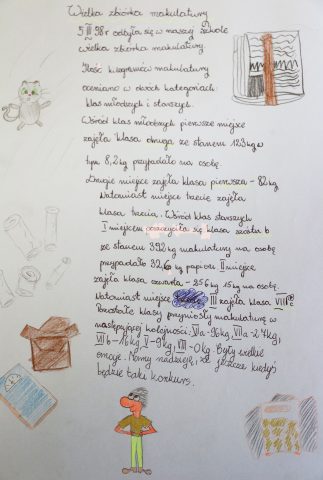 Wielka zbiórka makulatury
5 III 98 r odbyła się w naszej szkole
wielka zbiórka makulatury.
Ilość kilogramów makulatury
oceniano w dwóch kategoriach:
klas młodszych i starszych.
Wśród klas młodszych pierwsze miejsce
zajęła klasa druga ze stanem 123 kg w
tym 8,2 kg przypadało na osobę.
Drugie miejsce zajęła klasa pierwsza - 82 kg
Natomiast miejsce trzecie zajęła
klasa trzecia. Wśród klas starszych
I miejscem poszczyciła się klasa szósta b
ze stanem 392 kg makulatury na osobę
przypadało 32,6 kg papieru II miejsce
zajęła klasa czwarta - 256 kg 15 kg na osobę.
Natomiast miejsce III zajęła klasa
Pozostałe klasy przyniosły makulaturę w
następującej kolejności: a - 96 kg,
b - 16 kg, V - 9 kg, - 0 kg. Były wielkie
emocje. Mamy nadzieję, że jeszcze kiedyś
będzie taki konkurs.